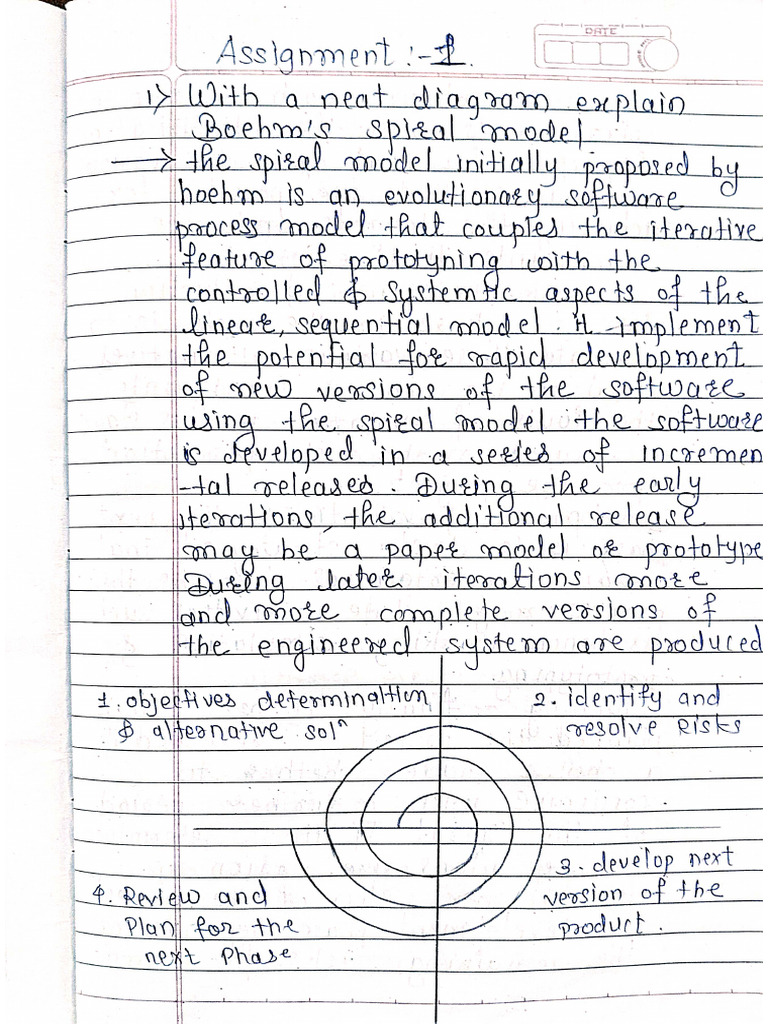 DATE
Assignment :- 1.
1) With a neat diagram explain
Boehm's spiral model
→ the spiral model initially proposed by
hoehm is an evolutionary software
process model that couples the iterative
feature of prototyning with the
controlled & systematic aspects of the
linear, sequential model. it implement
the potential for rapid development
of new versions of the software
using the spiral model the software
is developed in a series of incremen
-tal releases. During the early
iterations, the additional release
may be a paper model or prototype
During later iterations more
and more complete versions of
the engineered system are produced
1. objectives determinaltion
& alternative solⁿ
2. identify and
resolve Risks
3. develop next
version of the
product.
4. Review and
Plan for the
next Phase